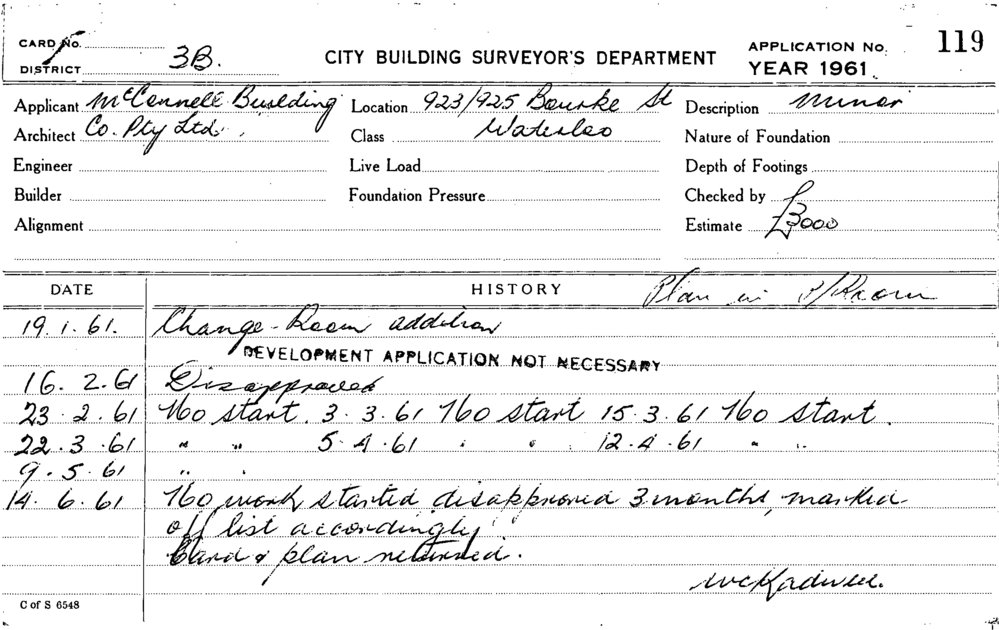 CARD No.
DISTRICT 3B.
CITY BUILDING SURVEYOR'S DEPARTMENT
APPLICATION No. 119
YEAR 1961.
Applicant McConnell Building Location 923/925 Bourke St Description Minor
Architect Co. Pty Ltd. Class Waterloo Nature of Foundation
Engineer Live Load Depth of Footings
Builder Foundation Pressure Checked by
Alignment Estimate £3000
DATE HISTORY Plan in P/Room
19.1.61. Change-Room addition
DEVELOPMENT APPLICATION NOT NECESSARY
16.2.61 Disapproved
23.2.61 No start. 3.3.61 No start 15.3.61 No start.
22.3.61 " " 5.4.61 " " 12.4.61 " "
9.5.61 " "
14.6.61 No work started disapproved 3 months, marked
off list accordingly
Card & plan returned.
C of S 6548